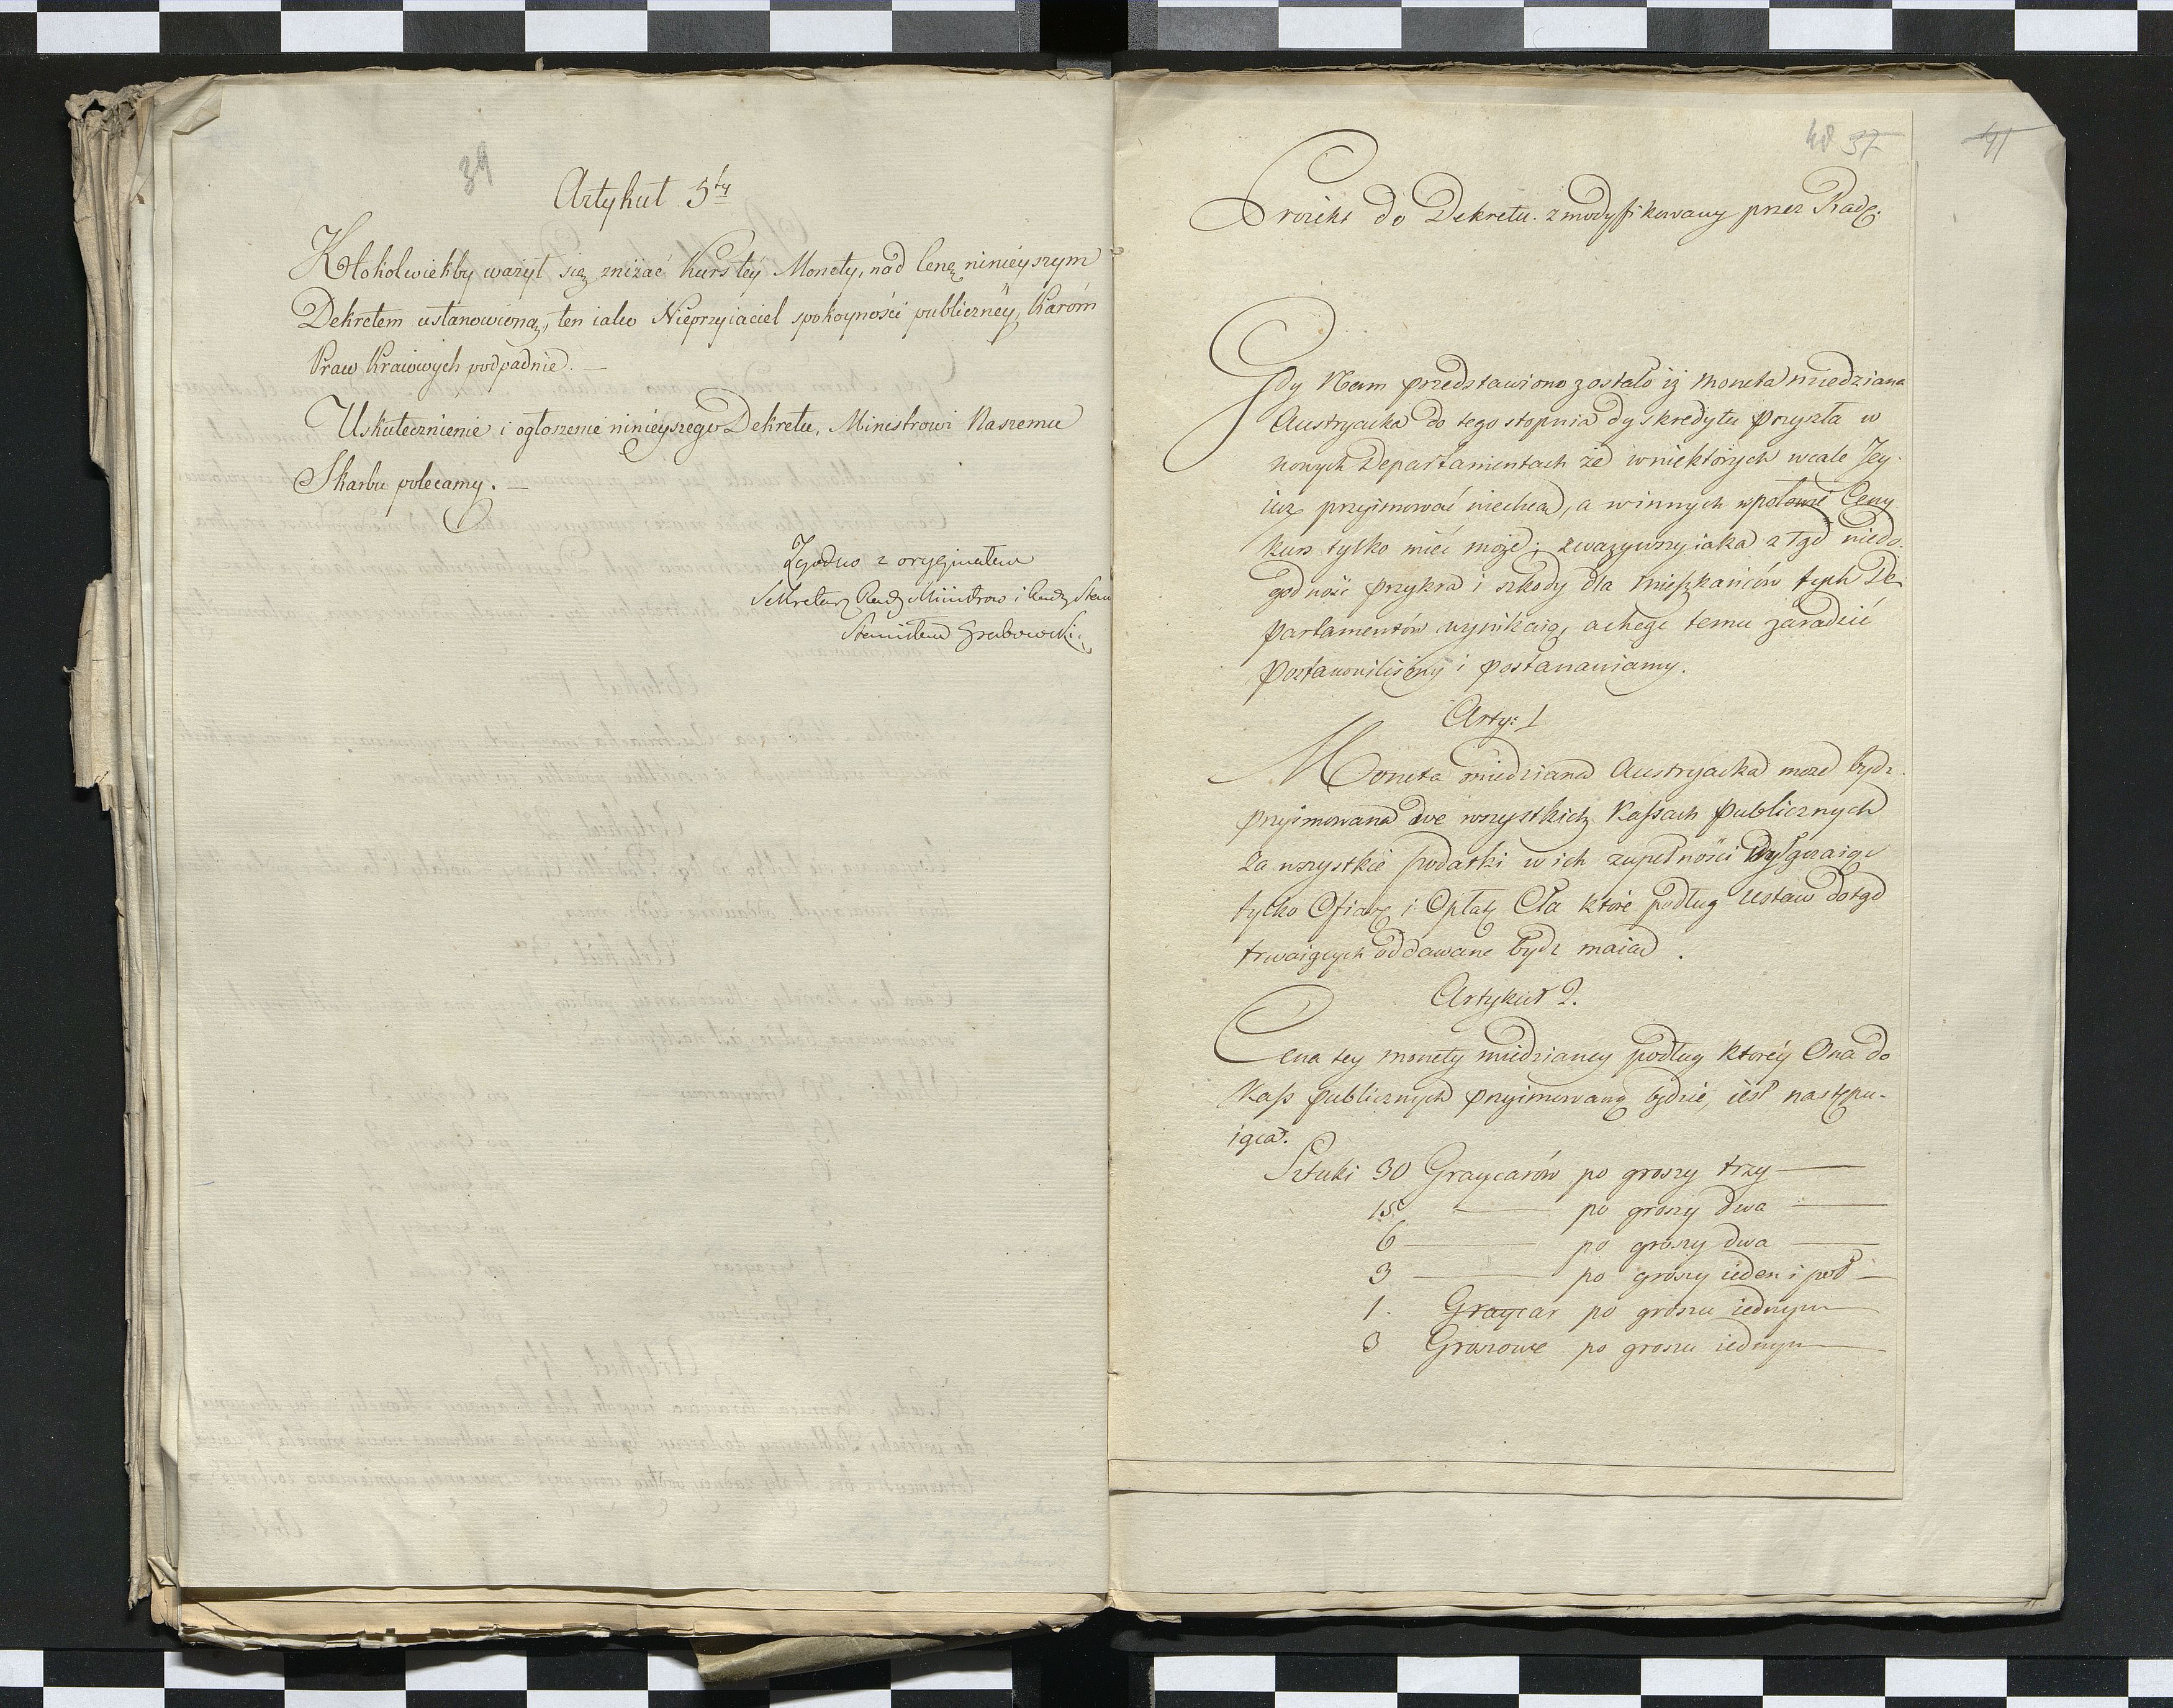 39
Artykuł 5ty
Ktokolwiekby ważył się zniżać kurs tey Monety, nad Cenę ninieyszym
Dekretem ustanowioną, ten iako Nieprzyiaciel spokoyności publiczney, Karom
Praw Kraiowych podpadnie. —
Uskutecznienie i ogłoszenie ninieyszego Dekretu, Ministrowi Naszemu
Skarbu polecamy. —
Zgodno z oryginałem
Sekretarz Rady Ministrow i Rady Stanu
Stanisław Grabowski
40 37
41
Proiekt do Dekretu. zmodyfikowany przez Radę.
Gdy Nam przedstawiono zostało iż moneta miedziana
Austryacka do tego stopnia dyskredytu przyszła w
nowych Departamentach że w niektórych wcale Jey
iuż przyimować niechcą, a w innych w połowie Ceny
kurs tylko mieć może; zważywszy iaka z tąd niedo-
godność przykra i szkody dla mieszkańców tych De-
partamentów wynikaią, a chcąc temu zaradzić
postanowiliśmy i postanawiamy.
Arty: 1
Moneta miedziana Austryacka może bydz
przyimowana we wszystkich Kassach publicznych
za wszystkie podatki w ich zupełności
tylko Ofiarę i Opłatę Cła które podług Ustaw dotąd
trwaiących oddawane bydz maią.
Artykuł 2.
Cena tey monety miedzianey podług którey Ona do
Kass publicznych przyimowaną będzie, iest następu-
iąca.
Sztuki 30 Graycarów po groszy trzy —
15 — po groszy dwa —
6 — po groszy dwa —
3 — po groszy ieden i pół —
1. Graycar po groszu iednym —
3 Groszowe po groszu iednym —